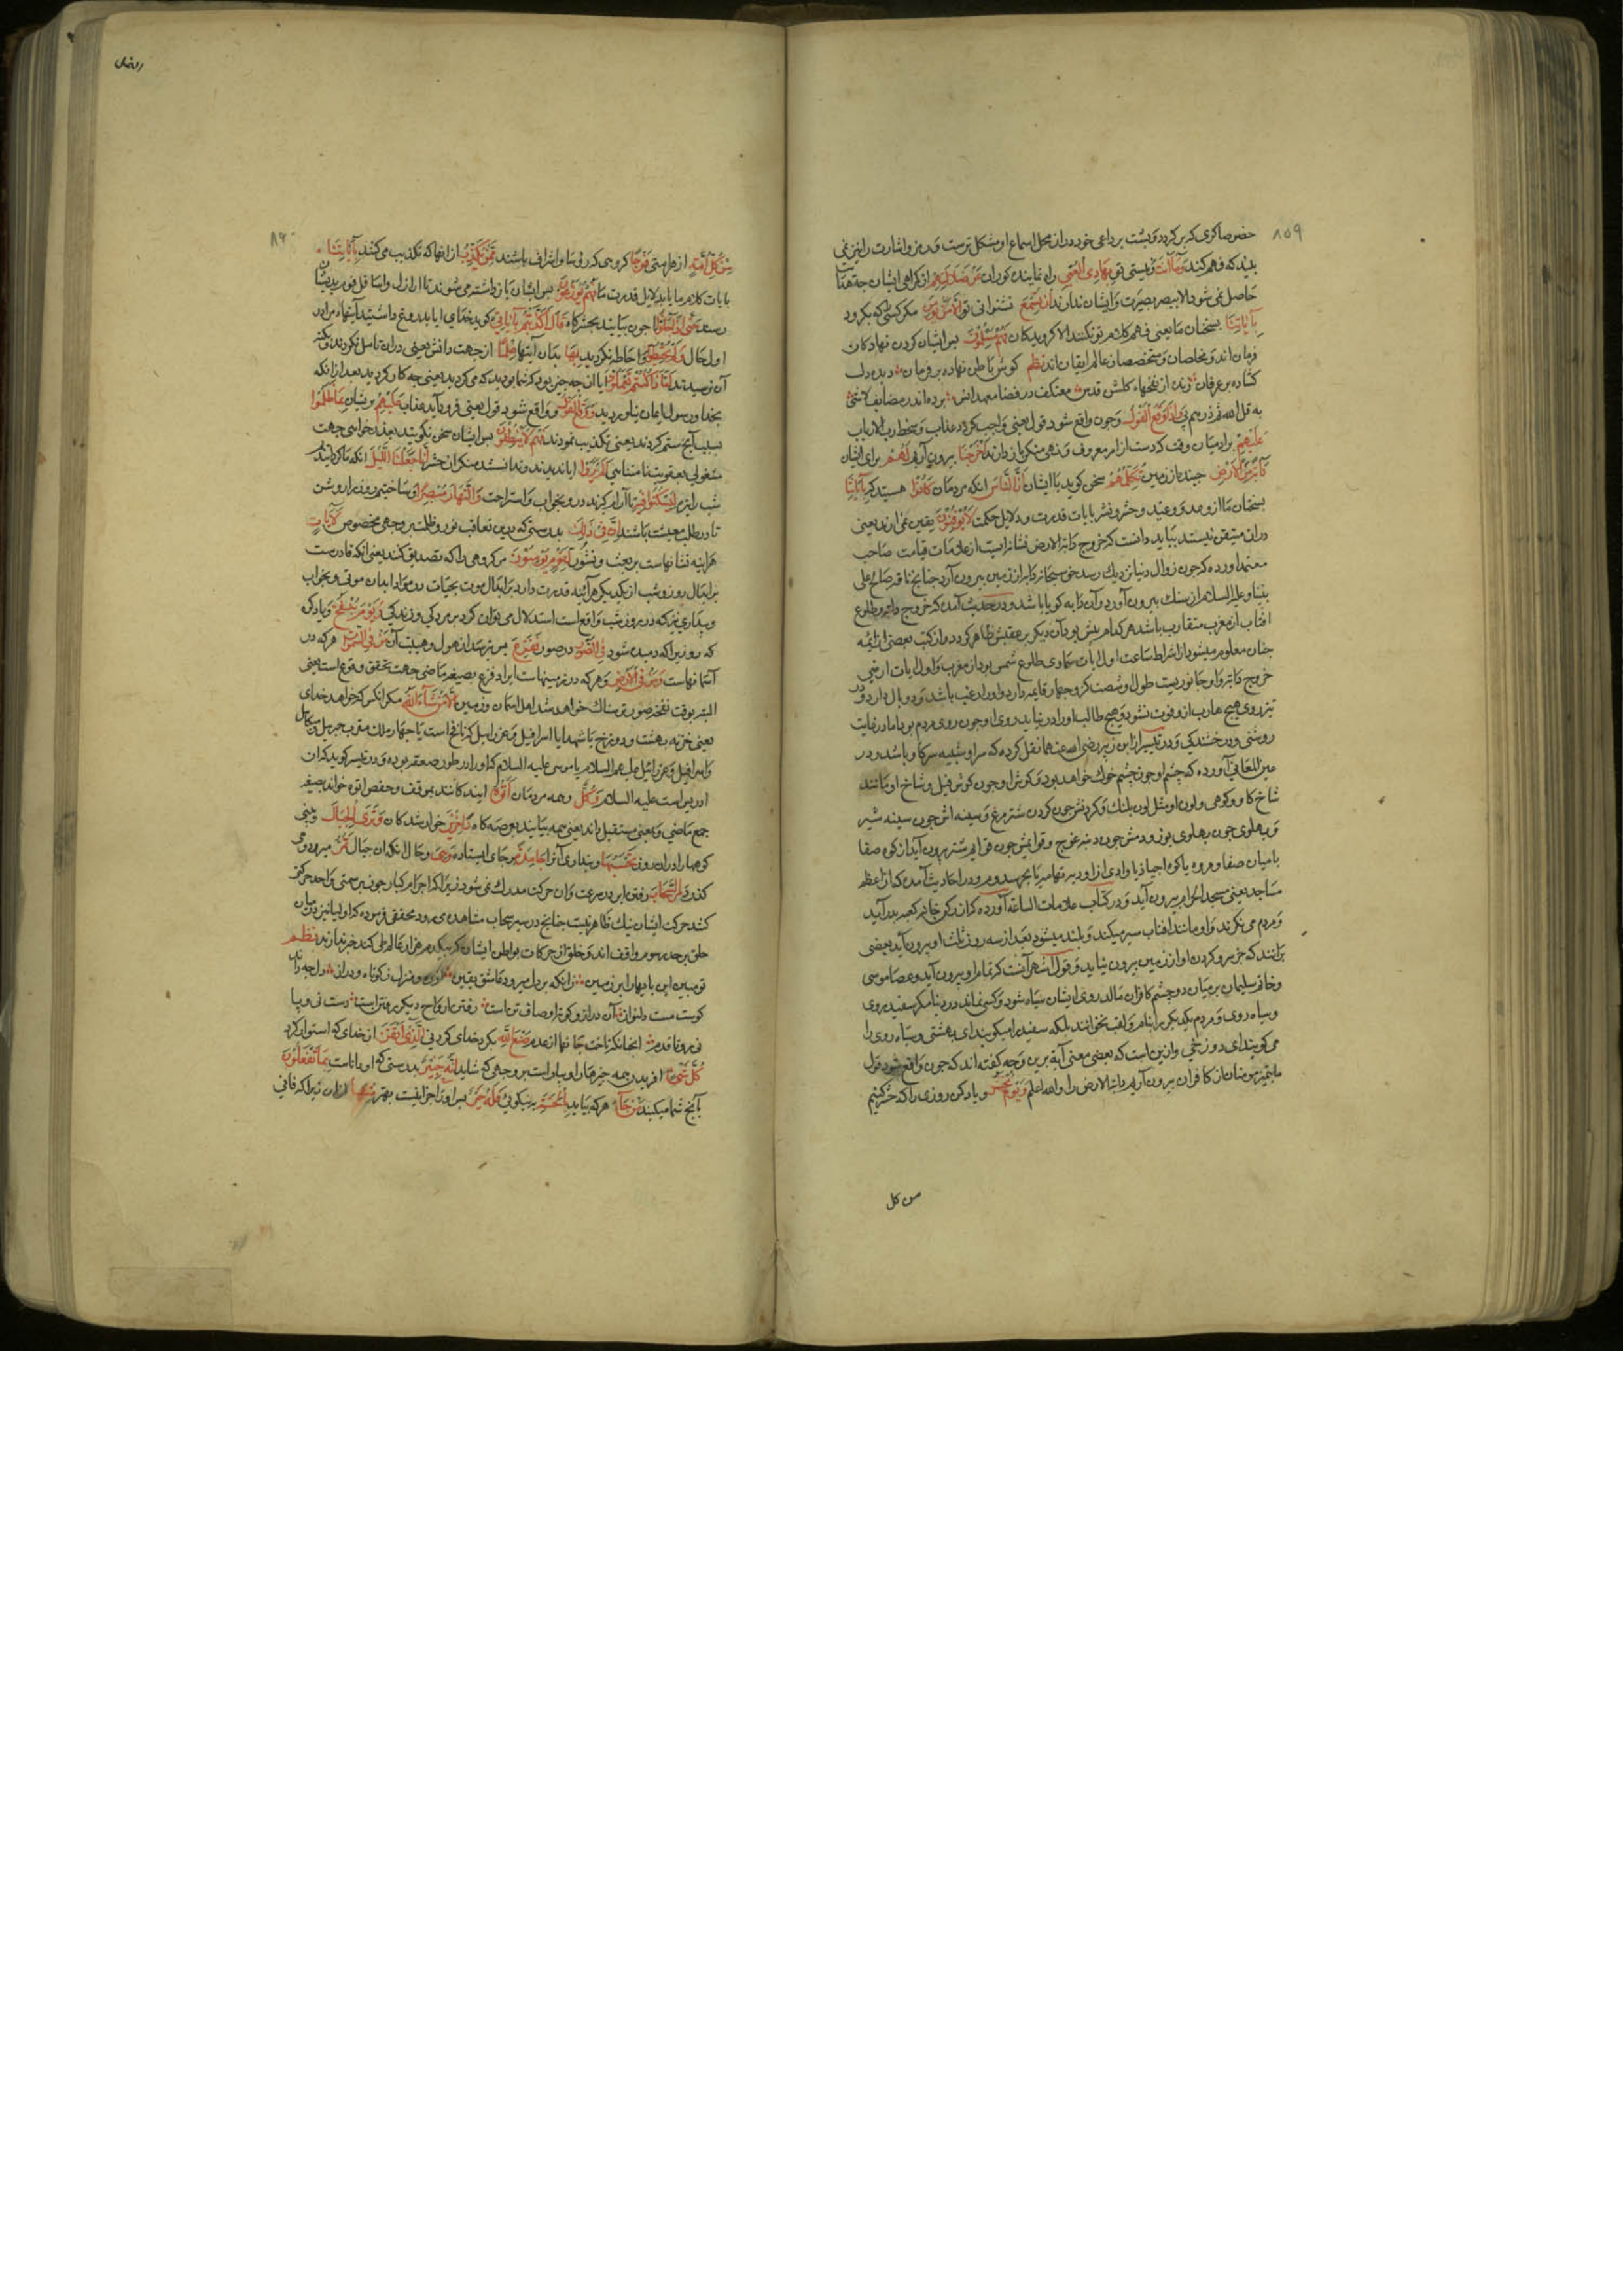 ۸۵۹
حضوصا کری که برگردد و پشت بر داعی خود دران محل اسماع او مشکل ترست و رمز و اشارت را نیز نمی
بیند که فهم کند وَمَا اَنْتَ و نیستی تو بِهَادِی الْعُمْیِ راه نماینده کوران عَنْ ضَلَالَتِهِمْ از کمراهی ایشان چه هدایت
حاصل نمی شود الا ببصر بصیرت و ایشان ندارند اِنْ تُسْمِعُ نشنوانی تو اِلَّا مَنْ یُؤْمِنُ مکر کسی که بکرود
بِاٰیَاتِنَا بسخنان ما یعنی فهم کلام تو نکنند الا کرویدکان فَهُمْ مُسْلِمُونَ پس ایشان کردن نهادکان
فرمان اند و مخلصان و متخصصان عالم ایقان اند نظم کوش باطن نهاده بر فرمان دیده دل
کشاده بر عرفان زنده از نفخهاء کلشن قدس معتکف در فضا
به قل الله ثم ذرهم وَاِذَا وَقَعَ الْقَوْلُ و چون واقع شود قول یعنی واجب کردد عذاب و سخط رب الارباب
عَلَیْهِمْ بر ادمیان وقتی که دست از امر معروف و نهی منکر باز دارند اَخْرَجْنَا بیرون آریم لَهُمْ برای ایشان
دَابَّةً مِنَ الْاَرْضِ جنبنده از زمین تُکَلِّمُهُمْ سخن کوید با ایشان اَنَّ النَّاسَ انکه مردمان کَانُوا هستند که بِاٰیَاتِنَا
بسخنان ما از وعد و وعید و حشر و نشر یا بایات قدرت و دلایل حکمت لَا یُوقِنُونَ یقین نمی ارند یعنی
دران متیقن نیستند بباید دانست که خروج دابة الارض نشانه ایست از علامات قیامت صاحب
معتمد اورده که چون زوال دنیا نزدیک رسد حق سبحانه دابه از زمین بیرون آرد چنانچه ناقه صالح علی
نبینا و علیه السلام از سنک بیرون آورد و آن دابه کویا باشد و در حدیث آمده که خروج دابه و طلوع
افتاب از مغرب متقارب باشد هر کدام پیش بود آن دیکر بر عقبش ظاهر کردد و از کتب بعضی ائمه
چنان معلوم میشود از اشراط ساعت اول آیات سماوی طلوع شمس بود از مغرب و اول ایات ارضی
خروج دابه و او جانوریست طول او شصت کز و چهار قایمه دارد و او را زغب باشد و دو بال دارد و در
تیزروی هیچ هارب از و فوت نشود و هیچ طالب او را در نیابد روی او چون روی مردم بود اما در غایت
روشنی و درخشندکی و در تفسیر از ابن زبیر رضی الله عنهما نقل کرده که سر او شبیه سر کاو باشد و در
عین المعانی آورده که چشم او چون چشم خوک خواهد بود و کوش او چون کوش فیل و شاخ او مانند
شاخ کاو کوهی و لون او مثل لون پلنک و کردنش چون کردن شترمرغ و سینه اش چون سینه شیر
و پهلوی چون پهلوی یوز و دمش چون دنبه غوج و قوایمش چون قوایم شتر بیرون آید از کوه صفا
یا میان صفا و مروه یا کوه اجیاد یا وادی از اودیه تهامه یا بحر سدوم و در احادیث آمده که از اعظم
مساجد یعنی مسجد الحرام بیرون آید و در کتاب علامات الساعة آورده که از رکن خانه کعبه بدر آید
و مردم می نکرند و او مانند افتاب سیر میکند و بلند میشود بعد از سه روز ثلث او بیرون آید بعضی
برانند که جز سر و کردن او از زمین بیرون نیاید و قول اشهر آنست که تمام او بیرون آید و عصا موسی
و خاتم سلیمان بر میان دو چشم کافران مالد روی ایشان سیاه شود و کسی نماند در دنیا مکر سفید روی
و سیاه روی و مردم یکدیکر را بنام و لقب نخوانند بلکه سفید را میکویند ای بهشتی و سیاه روی را
می کویند ای دوزخی و ازین است که بعضی معنی آیه برین وجه کفته اند که چون واقع شود قول
ما بتمیز مومنان از کافران بیرون آریم دابة الارض را و الله اعلم وَیَوْمَ نَحْشُرُ و یاد کن روزی را که حشر کنیم
من کل
۸۶۰
مِنْ کُلِّ اُمَّةٍ از هر امتی فَوْجًا کروهی که رؤسا و اشراف باشند مِمَّنْ یُکَذِّبُ از انها که تکذیب می کنند بِاٰیَاتِنَا
بایات کلام ما یا بدلایل قدرت ما فَهُمْ یُوزَعُونَ پس ایشان باز داشته می شوند تا اراذل و اسافل قوم بدیشان
رسد حَتّٰی اِذَا جَاءُوا تا چون بیایند بمحشرکاه قَالَ اَکَذَّبْتُمْ بِاٰیَاتِی کوید خدای ایا بدروغ داشتید آیتهاء مرا در
اول حال وَلَمْ تُحِیطُوا و احاطه نکردید بِهَا بدان آیتها عِلْمًا از جهت دانش یعنی دران تامل نکردند و بکنه
آن نرسیدند اَمَّا ذَا کُنْتُمْ تَعْمَلُونَ ایا ان چه چیز بود که شما بودید که می کردید یعنی چه کار کردید بعد از انکه
بخدا و رسول ایمان نیاوردید وَوَقَعَ الْقَوْلُ و واقع شود قول یعنی فرود آید عذاب عَلَیْهِمْ بریشان بِمَا ظَلَمُوا
بسبب آنچه ستم کردند یعنی تکذیب نمودند فَهُمْ لَا یَنْطِقُونَ پس ایشان سخن نکویند بعذرخواهی جهت
مشغولی بعقوبت نامتناهی اَلَمْ یَرَوْا ایا ندیدند و ندانستند منکران حشر اَنَّا جَعَلْنَا اللَّیْلَ انکه ما کردانیدیم
شب را تیره لِیَسْکُنُوا فِیهِ تا آرام کیرند درو بخواب و استراحت وَالنَّهَارَ مُبْصِرًا و ساختیم روز را روشن
تا در طلب معیشت باشند اِنَّ فِی ذٰلِکَ بدرستی که درین تعاقب نور و ظلمت بر وجهی مخصوص لَاٰیَاتٍ
هراینه نشانهاست بر بعث و نشور لِقَوْمٍ یُؤْمِنُونَ مر کروهی را که تصدیق کنند یعنی انکه قادرست
بر ابدال روز و شب از یکدیکر هرآینه قدرت دارد بر ابدال موت بحیات در مواد ابدان موتی و بخواب
و بیداری نیز که در روز و شب واقع است استدلال می توان کرد بر مردکی و زندکی وَیَوْمَ یُنْفَخُ و یاد کن
که روزیرا که دمیده شود فِی الصُّورِ در صور فَفَزِعَ پس بترسد از هول و هیبت آن مَنْ فِی السَّمٰوَاتِ هر که در
آسمانهاست وَمَنْ فِی الْاَرْضِ و هر که در زمینهاست ایراد فزع بصیغه ماضی جهت تحقق وقوع است یعنی
البته بوقت نفخه صور ترسناک خواهد شد اهل اسمان و زمین اِلَّا مَنْ شَاءَ اللّٰهُ مکر انکس که خواهد خدای
یعنی خزنه بهشت و دوزخ یا شهدا یا اسرافیل و عزراییل که ازانجاست یا چهار ملک مقرب جبریل و میکائیل
و اسرافیل و عزرائیل علیهم السلام یا موسی علیه السلام که او را در طور صعقه بوده و در تفسیر کوید که ان
ادریس است علیه السلام وَکُلٌّ و همه مردمان اَتَوْهُ ایند کانند بموقف و حفص اتوه خواند بصیغه
جمع ماضی و بمعنی مستقبل داند یعنی همه بیایند بعرصه کاه دَاخِرِینَ خوار شدکان وَتَرَی الْجِبَالَ و بینی
کوهها را دران روز تَحْسَبُهَا و پنداری آنرا جَامِدَةً بر جای ایستاده وَهِیَ و حال انکه ان جبال تَمُرُّ میرود و می
کذرد مَرَّ السَّحَابِ رفتن ابر در سرعت و ان حرکت مدرک نمی شود زیرا که اجرام کبار چون بر سمتی واحد حرکت
کنند حرکت ایشان نیک ظاهر نیست چنانچه در سیر سحاب مشاهده می رود محققی فرموده که اولیا نیز در میان
خلق بر حد رسوم واقف اند و خلق از حرکات بواطن ایشان که بیکدم هزار عالم طی کنند خبر ندارند نظم
تو مبین این پایها را بر زمین زانکه بر دل میرود عاشق یقین از ره و منزل ز کوتاه و دراز دل چه داند
کوست مست دلنواز آن دراز و کوته اوصاف تن است رفتن ارواح دیکر رفتن است دست نی و پا
نی رو تا قدم انچنانکه تاخت جانها از عدم صُنْعَ اللّٰهِ بکرد خدای کردنی اَلَّذِی اَتْقَنَ از خدای که استوار کرد
کُلَّ شَیْءٍ افریدن همه چیزها را و بیاراست بر وجهی که شاید اِنَّهُ خَبِیرٌ بدرستی که او داناست بِمَا تَفْعَلُونَ
بآنچه شما میکنید مَنْ جَاءَ هر که بیاید بِالْحَسَنَةِ به نیکوئی فَلَهُ خَیْرٌ پس او را جزائیست بهتر مِنْهَا ازان زیرا که فانی